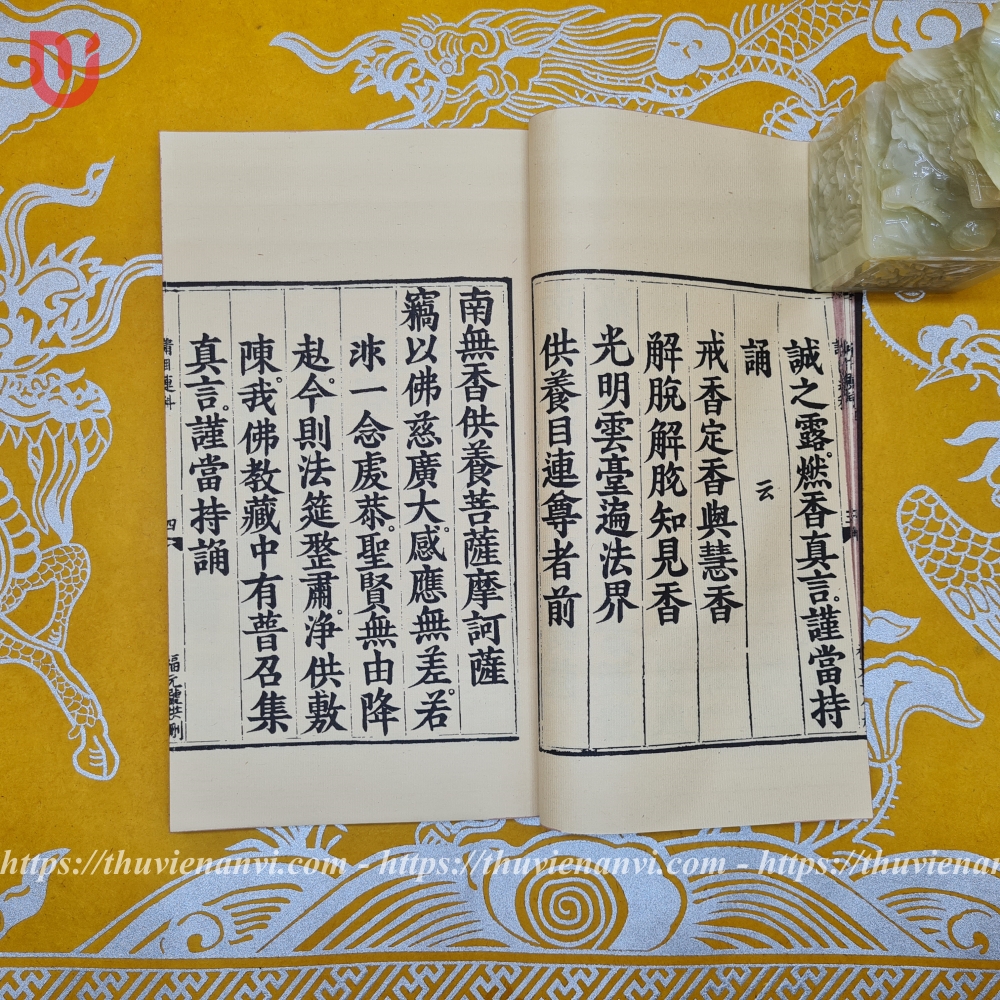 誠之露。燃香真言。謹當持
誦
云
戒香定香與慧香
解脫解脫知見香
光明雲臺遍法界
供養目連尊者前
南無香供養菩薩摩訶薩
竊以佛慈廣大。感應無差。若
非一念虔恭。聖賢無由降
赴。今則法筵整肅。净供敷
陳。我佛教藏中有普召集
真言。謹當持誦
四
https://thuvienanvi.com - https://thuvienanvi.com - https://thuvienanvi